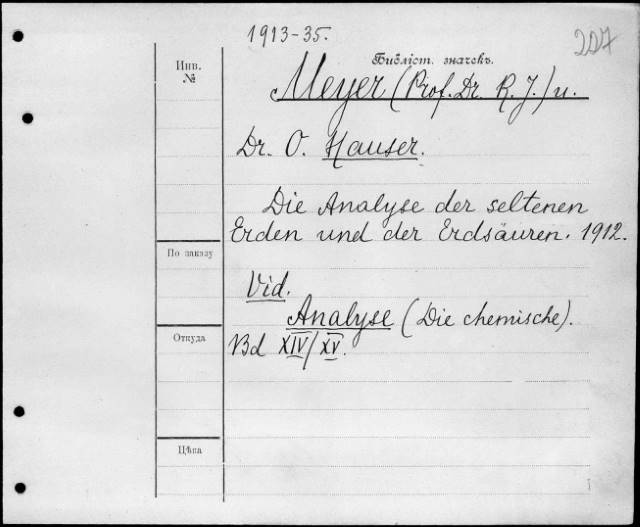 1913-35.
207
Инв.
№
Библіст. значекъ.
Meyer (Prof. Dr. R. J.) u.
Dr. O. Hauser.
Die Analyse der seltenen
Erden und der Erdsäuren. 1912.
По заказу
Vid.
Analyse (Die chemische).
Откуда
Bd XIV/XV.
Цѣна